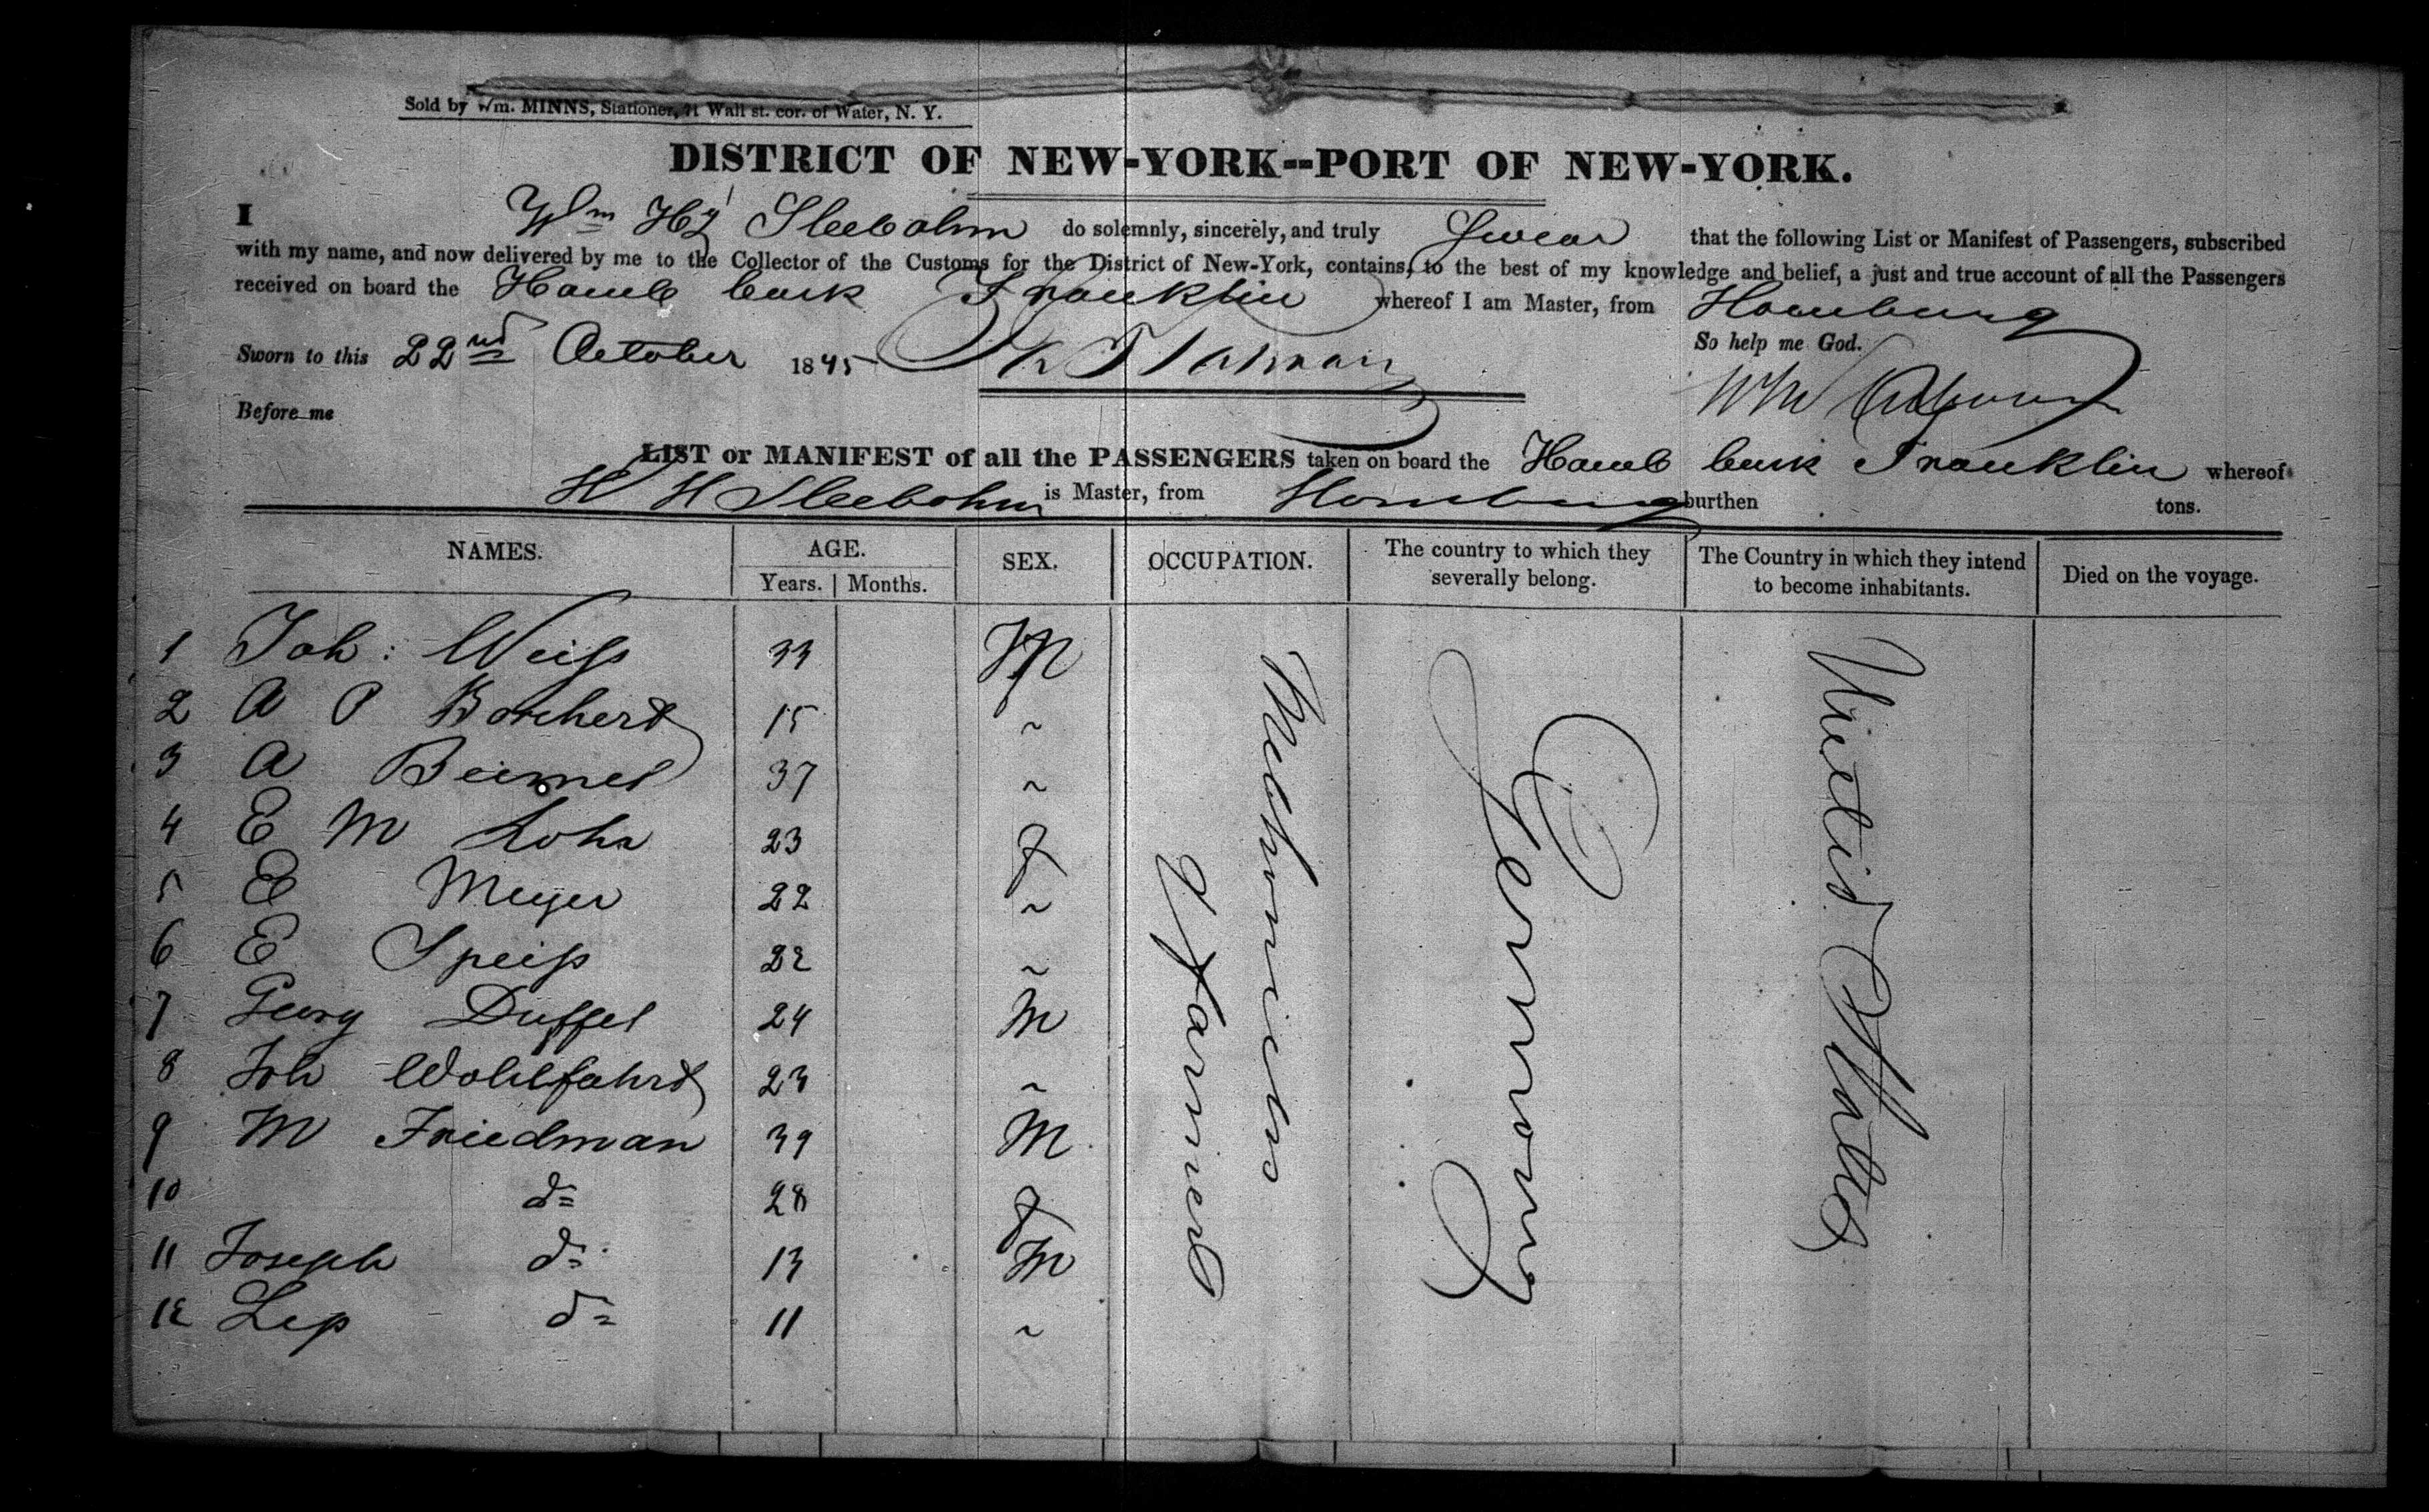 Sold by Wm. MINNS, Stationer, 71 Wall st. cor. of Water, N. Y.
DISTRICT OF NEW-YORK--PORT OF NEW-YORK.
I Wm Hy Sleebohm do solemnly, sincerely, and truly Swear that the following List or Manifest of Passengers, subscribed
with my name, and now delivered by me to the Collector of the Customs for the District of New-York, contains, to the best of my knowledge and belief, a just and true account of all the Passengers
received on board the Hamb bark Franklin whereof I am Master, from Hamburg
So help me God.
Sworn to this 22nd October 1845
Before me
LIST or MANIFEST of all the PASSENGERS taken on board the Hamb bark Franklin whereof
W H Sleebohm is Master, from Hamburg burthen tons.
NAMES. AGE. SEX. OCCUPATION. The country to which they severally belong. The Country in which they intend to become inhabitants. Died on the voyage.
Years. Months.
1 Joh: Weiss 33 M
2 A P Borchert 15 ~
3 A Beimel 37 ~
4 E M Lohr 23 f
5 E Meyer 22 ~
6 E Speiss 22 ~
7 Georg Duffel 24 M
8 Joh Wohlfahrt 23 ~
9 M Friedman 39 M
10 do 28 f
11 Joseph do 13 M
12 do 11 ~
Mechanicks
& farmers
Germany
United States